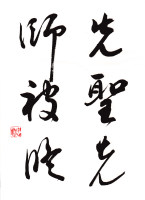 先聖先
師被